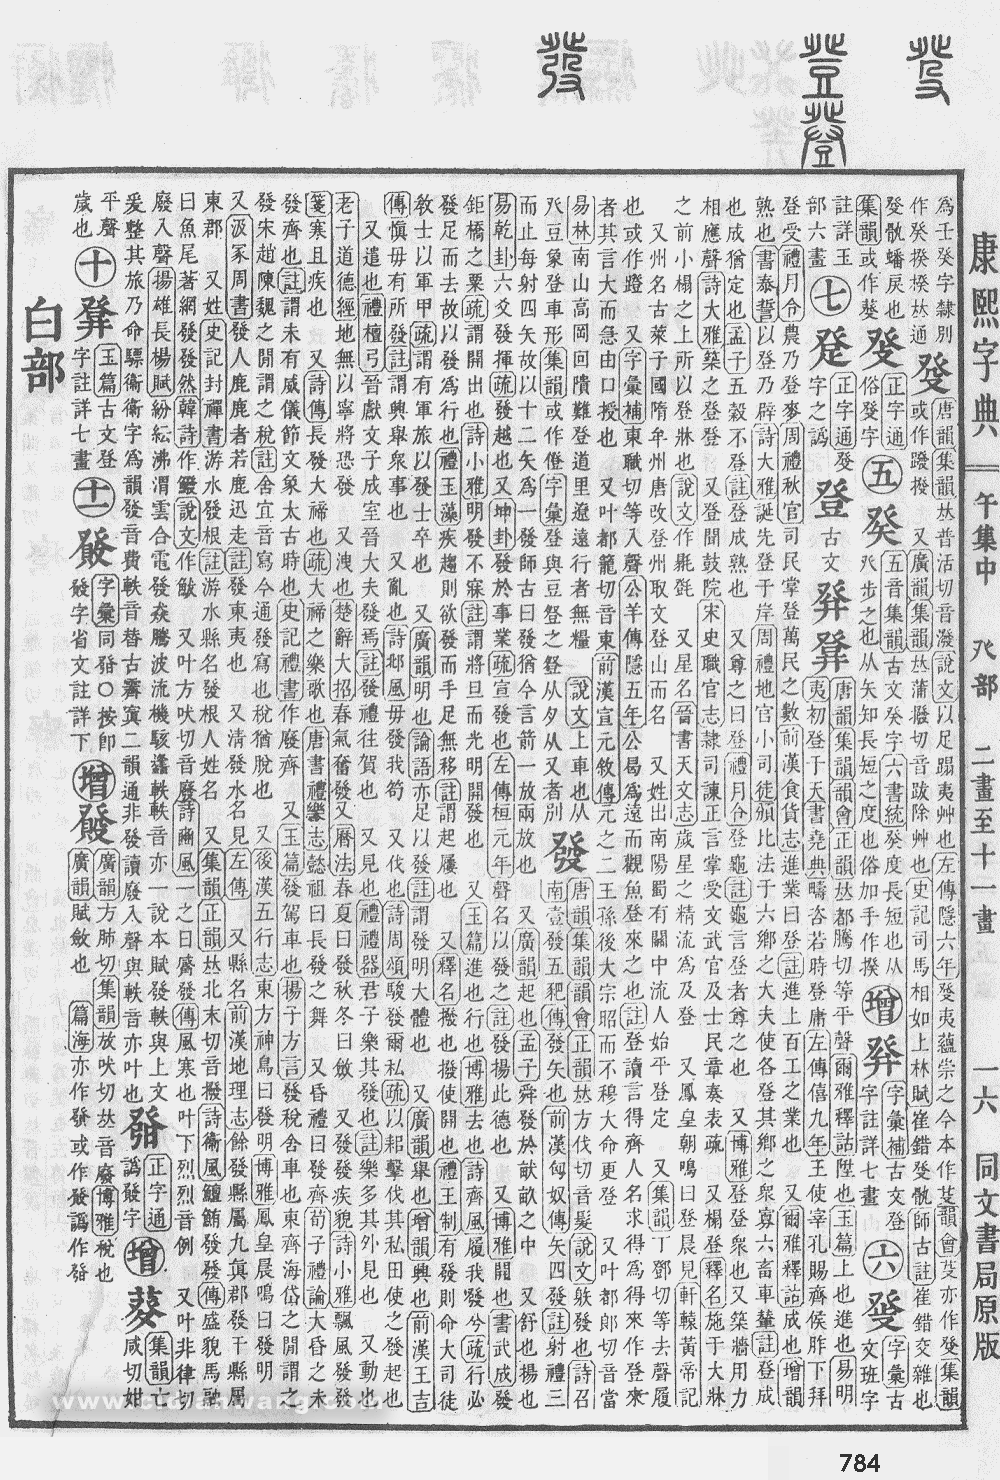 康熙字典 午集中 癶部 二畫至十一畫 一六 同文書局原版
唐韻集韻𠀤普活切音潑說文以足蹋夷艸也左傳隱六年癹夷蘊崇之今本作芟韻會芟亦作癹集韻
或作蹳撥 又廣韻集韻𠀤蒲撥切音跋除艸也史記司馬相如上林賦崔錯癹骫師古註崔錯交雜也
癹骫蟠戾也
集韻或作
正字通
俗發字
五 癸
五音集韻古文癸字六書統癸度長短也从
癶步之也从矢知長短之度也俗加手作揆
增
字彙補古文登
字註詳七畫
六
字彙古
文班字
註詳玉
部六畫
七
正字通癹
字之譌
登
古文
唐韻集韻韻會正韻𠀤都騰切等平聲爾雅釋詁陞也玉篇上也進也易明
夷初登于天書堯典疇咨若時登庸左傳僖九年王使宰孔賜齊侯胙下拜
登受禮月令農乃登麥周禮秋官司民掌登萬民之數前漢食貨志進業曰登註進上百工之業也 又爾雅釋詁成也增韻
熟也書泰誓以登乃辟詩大雅誕先登于岸周禮地官小司徒頒比法于六鄉之大夫使各登其鄉之衆寡六畜車輦註登成
也成猶定也孟子五穀不登註成熟也 又尊之曰登禮月令登龜註龜言登者尊之也 又博雅登登衆也又築牆用力
相應聲詩大雅築之登登 又登聞鼓院宋史職官志隷司諫正言掌受文武官及士民章奏表疏 又榻登釋名施于大牀
之前小榻之上所以登牀也說文作㲪㲪 又星名晉書天文志歲星之精流爲及登 又鳳皇朝鳴曰登晨見軒轅黃帝記
又州名古萊子國隋牟州唐改登州取文登山而名 又姓出南陽蜀有關中流人始平登定 又集韻丁鄧切等去聲履
也或作蹬 又字彙補東職切等入聲公羊傳隱五年公曷爲遠而觀魚登來之也註登讀言得齊人名求得爲得來作登來
者其言大而急由口授也 又叶都籠切音東前漢宣元敘傳元之二王孫後大宗昭而不穆大命更登 又叶都郎切音當
易林南山高岡回隤難登道里遼遠行者無糧 說文上車也从
癶豆象登車形集韻或作僜字彙登與豆登之登从夕从又者別
發
唐韻集韻韻會正韻𠀤方伐切音髮說文躲發也詩召
南壹發五豝傳發矢也前漢匈奴傳矢四發註射禮三
而止每射四矢故以十二矢爲一發師古曰發猶今言箭一放兩放也 又廣韻起也孟子舜發於畎畝之中 又舒也揚也
易乾卦六爻發揮疏發越也又坤卦發於事業疏宣發也 左傳桓元年聲名以發之註發揚此德也 又博雅開也書武成發
鉅橋之粟疏謂開出也詩小雅明發不寐註謂將旦而光明開發也 又玉篇進也行也博雅去也詩齊風履我發兮疏行必
發足而去故以發爲行也禮玉藻疾趨則欲發而手足無移註謂起屨也 又釋名撥也撥使開也禮王制有發則命大司徒
敎士以軍甲疏謂有軍旅以發士卒也 又廣韻明也論語亦足以發註謂發明大體也 又廣韻舉也增韻興也前漢王吉
傳愼毋有所發註謂興舉衆事也 又亂也詩邶風毋發我笱 又伐也詩周頌駿發爾私疏以耜擊伐其私田使之發起也
又遣也禮檀弓晉獻文子成室晉大夫發焉註發禮往賀也 又見也禮禮器君子樂其發也註樂多其外見也 又動也
老子道德經地無以寧將恐發 又洩也楚辭大招春氣奮發 又曆法春夏曰發秋冬曰斂 又發發疾貌詩小雅飄風發發
箋寒且疾也 又詩傳長發大禘也疏大禘之樂歌也唐書禮樂志懿祖曰長發之舞 又昏禮曰發齊荀子禮論大昏之未
發齊也註謂未有威儀節文象太古時也史記禮書作廢齊 又玉篇發駕車也揚子方言發稅舍車也東齊海岱之閒謂之
發宋趙陳魏之閒謂之稅註舍宜音寫今通發寫也稅猶脫也 又後漢五行志東方神鳥曰發明博雅鳳皇晨鳴曰發明
又汲冢周書發人鹿鹿者若鹿迅走註發東夷也 又淸發水名見左傳 又縣名前漢地理志餘發縣屬九眞郡發干縣屬
東郡 又姓史記封禪書游水發根註游水縣名發根人姓名 又集韻正韻𠀤北末切音撥詩衞風鱣鮪發發傳盛貌馬融
曰魚尾著網發發然韓詩作鱍說文作鮁 又叶方吠切音廢詩豳風一之日觱發傳風寒也叶下烈烈音例 又叶非律切
廢入聲揚雄長楊賦紛紜沸渭雲合電發猋騰波流機駭蠭軼軼音亦一說本賦發軼與上文
爰整其旅乃命驃衞衞字爲韻發音費軼音替古霽寘二韻通非發讀廢入聲與軼音亦叶也
正字通
譌發字
增
集韻亡
咸切㛤
平聲
歲也
十
玉篇古文登
字註詳七畫
十一
字彙同發○按卽
發字省文註詳下
增
廣韻方肺切集韻放吠切𠀤音廢博雅稅也
廣韻賦斂也 篇海亦作發或作發譌作發
白部
784
www.cidianwang.com